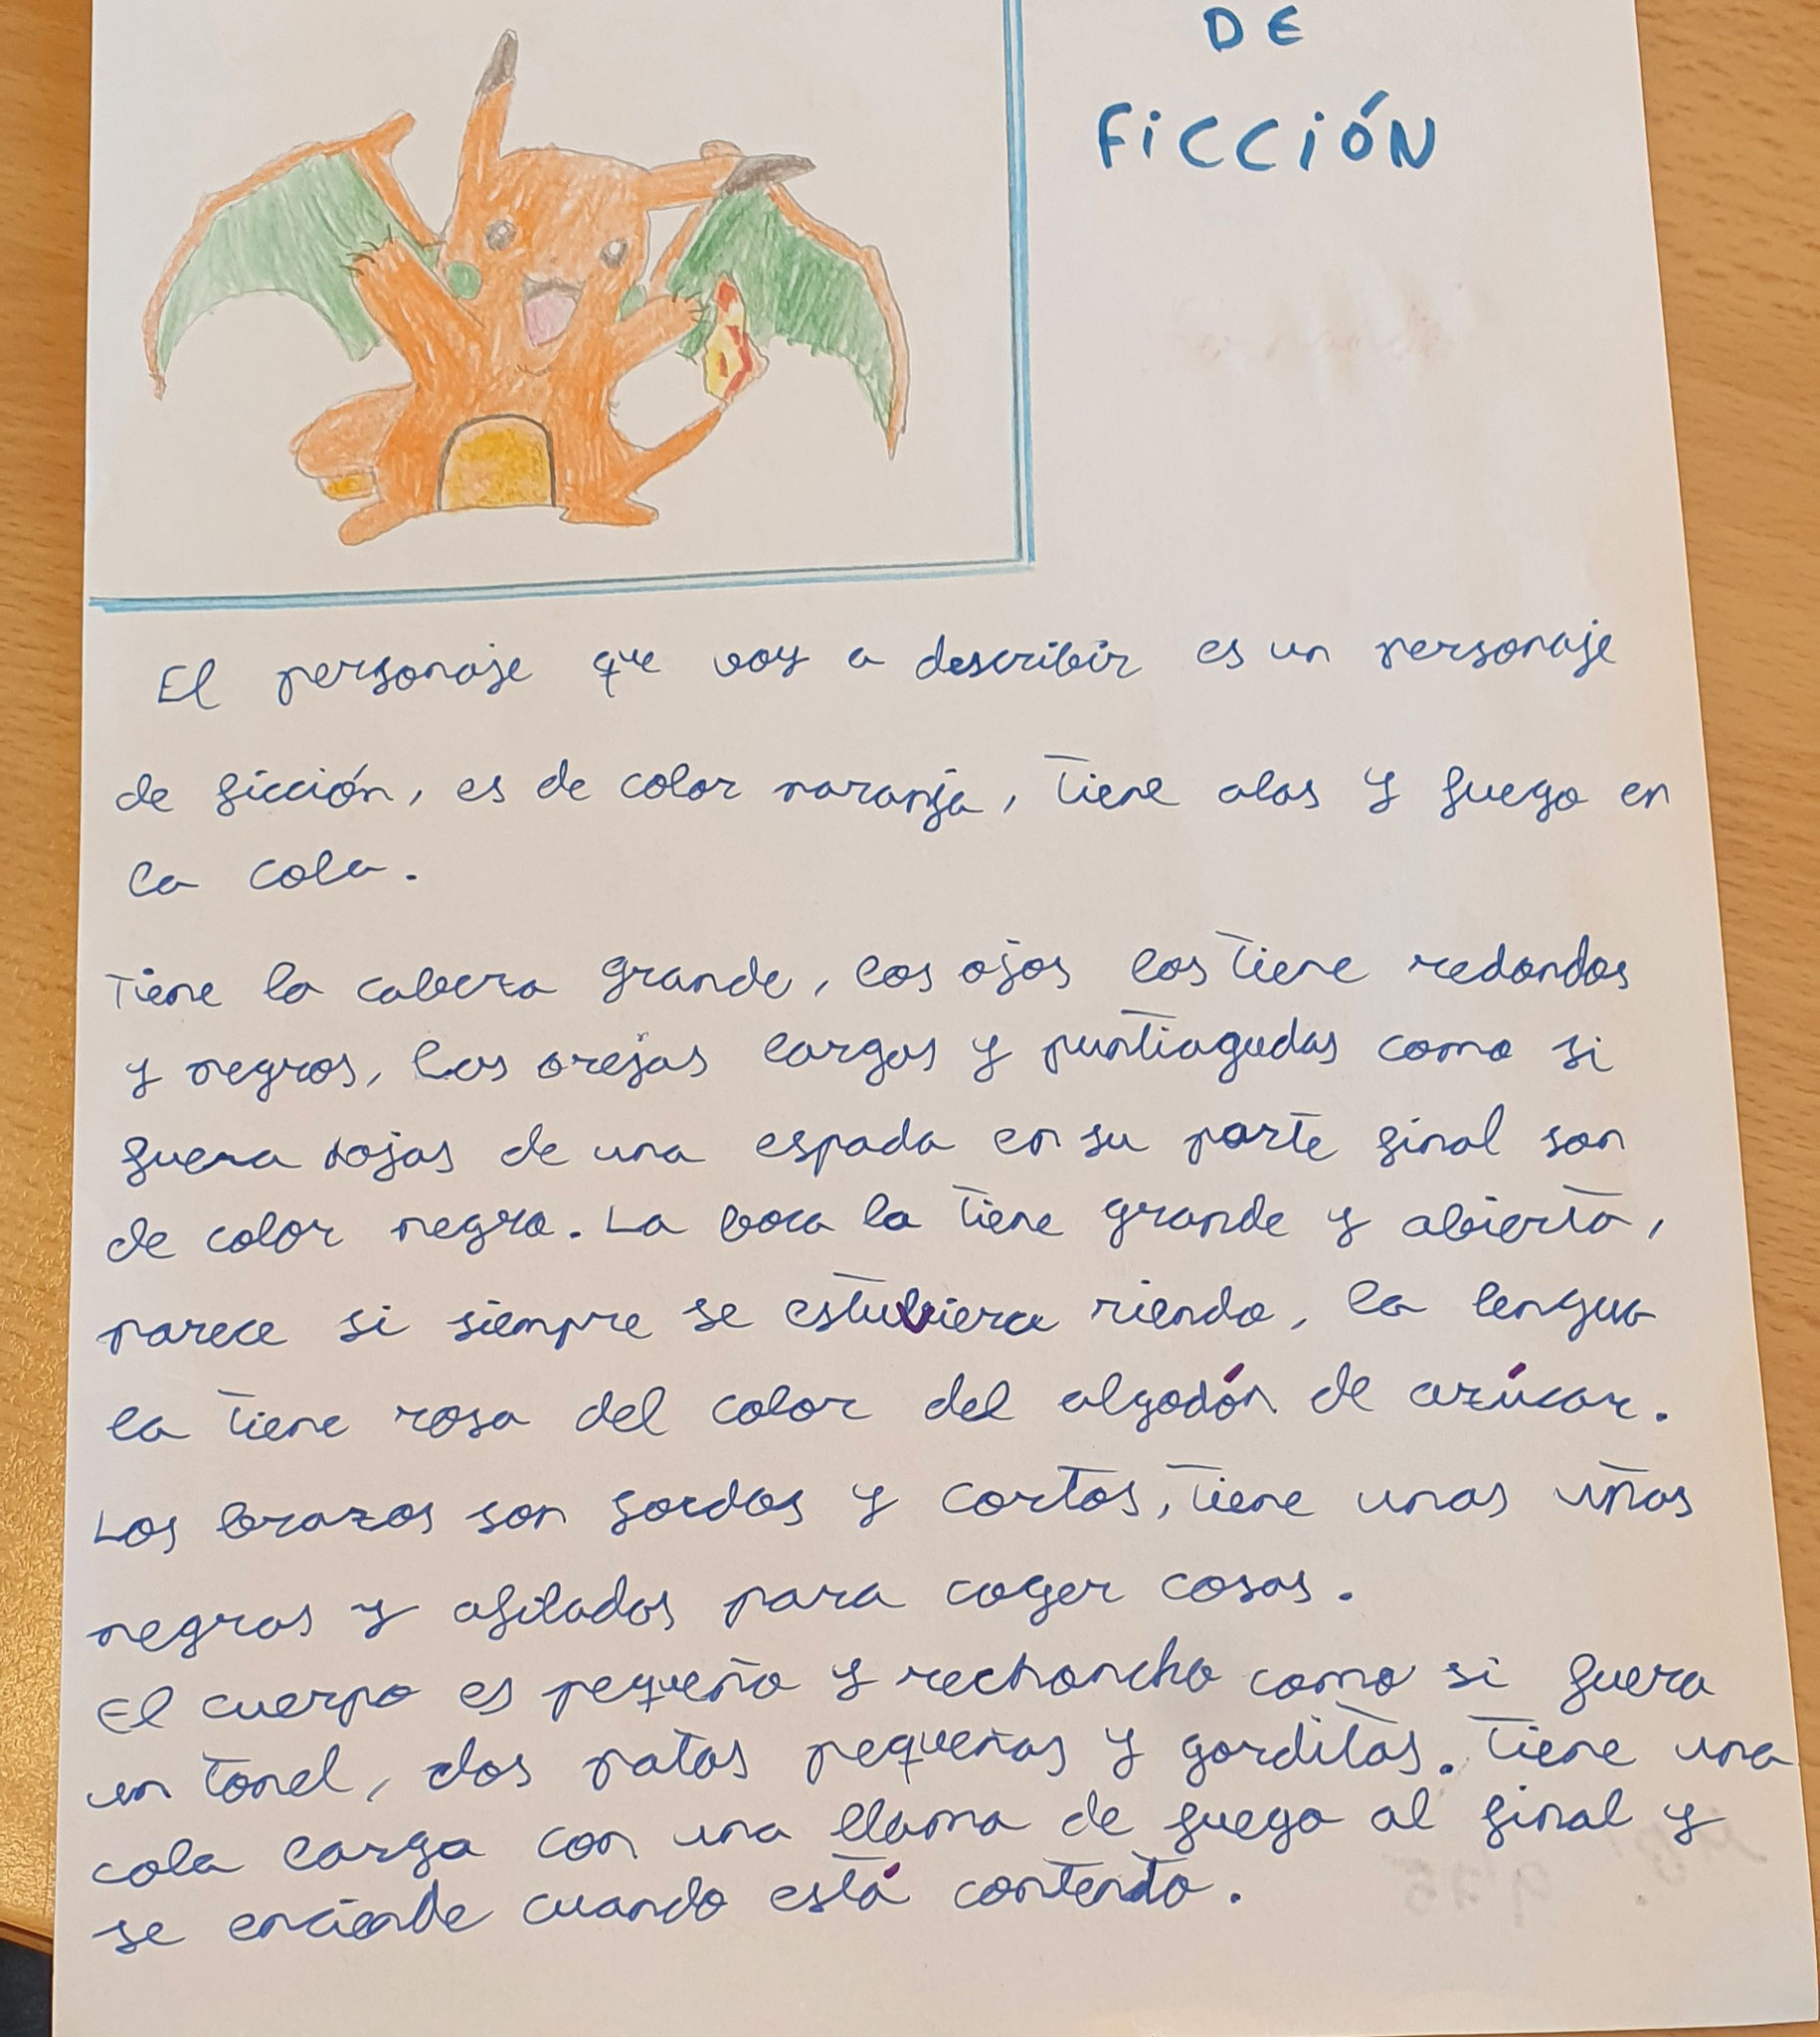 DE
FiCCiÓN
El personaje que voy a describir es un personaje
de ficción, es de color naranja, tiene alas y fuego en
la cola.
Tiene la cabeza grande, los ojos los tiene redondos
y negros, las orejas largas y puntiagudas como si
fuera hojas de una espada en su parte final son
de color negro. La boca la tiene grande y abierta,
parece si siempre se estuviera riendo, la lengua
la tiene rosa del color del algodón de azúcar.
Los brazos son gordos y cortos, tiene unas uñas
negras y afiladas para coger cosas.
El cuerpo es pequeño y rechoncho como si fuera
un tonel, dos patas pequeñas y gorditas. Tiene una
cola larga con una llama de fuego al final y
se enciende cuando está contento.